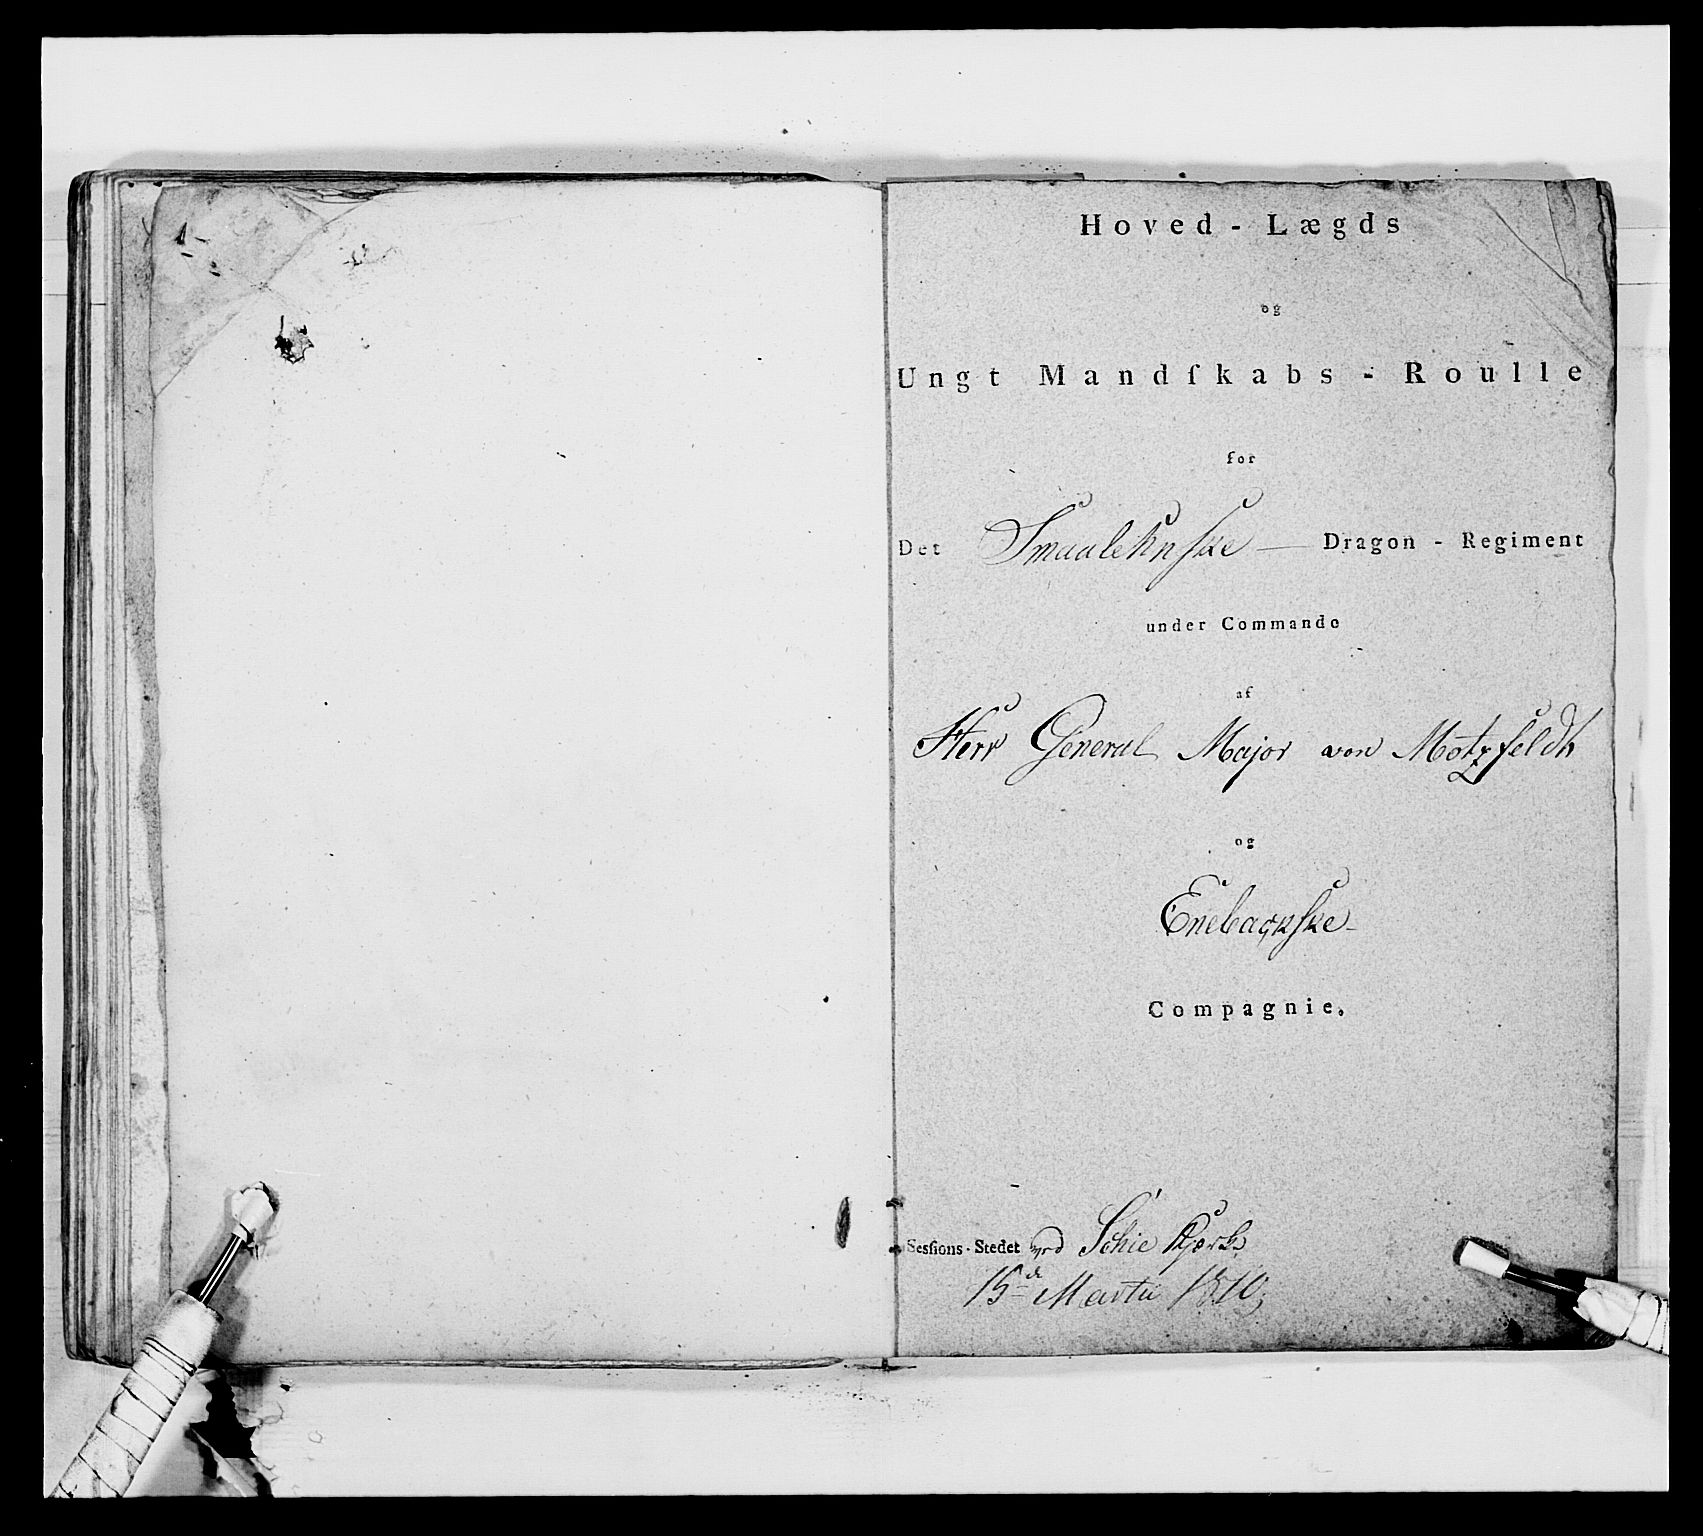 Hoved - Lægds
og
Ungt Mandſkabs - Roulle
for
Det Smaalehnſke Dragon - Regiment
under Commando
af
Herr General Major von Motzfeldt
og
Enebackſke
Compagnie.
Sesſions - Stedet ved Schie Kjerke
15de Martii 1810;